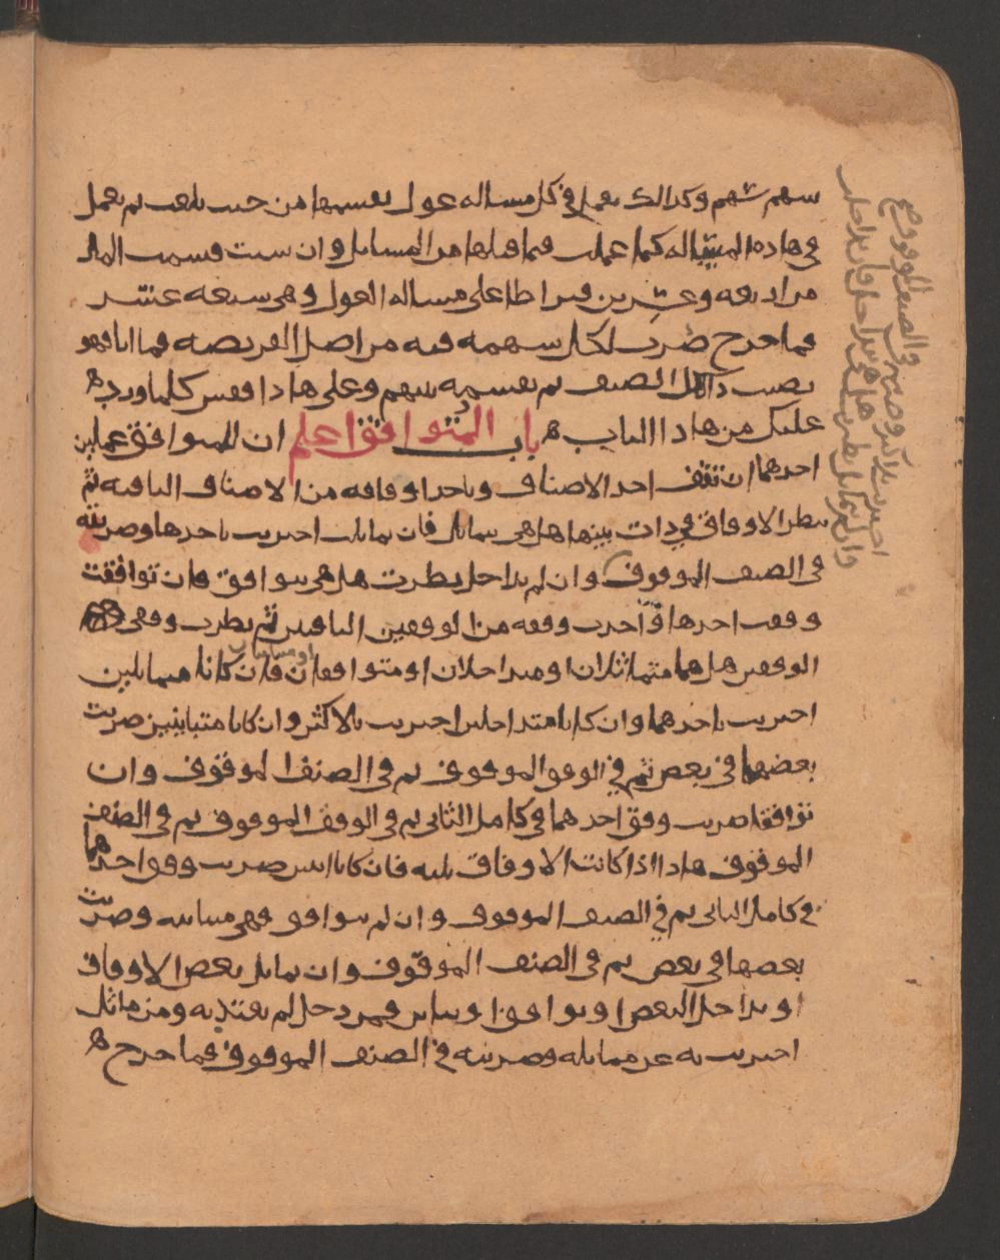 سهم سهم وكذالك تعمل في كل مساله عول تقسمها من حيث بلغت ثم تعمل
في هاذه المساله كما عملت فما قبلها من المسايل وان شيت قسمت المال
من اربعه وعشرين قيراطا على مساله العول وهي سبعه عشر
فما خرج ضرب لكل سهمه فيه من اصل الفريضه فما اتا فهو
نصيب ذالك الصنف ثم تقسمه بينهم وعلى هاذا فقس كلما ورد
عليك من هاذا الباب ه باب المتوافق اعلم ان للمتوافق عملين
احدهما ان تقف احد الاصناف وتاخذ اوفاقه من الاصناف الباقيه ثم
تنظر الاوفاق في ذات بينها هل هي تماثل فان تماثلت اجتزيت باحدها وضربته
في الصنف الموقوف وان لم تداخل نظرت هل هي توافق فان توافقت
وقفت احدها واخذت وفقه من الوفقين الباقيين ثم نظرت وفقي
الوفقين هل هما متماثلان او متداخلان او متوافقان او متباينان فان كانا متماثلين
اجتزيت باحدهما وان كانا متداخلين اجتزيت بالاكثر وان كانا متباينين ضربت
بعضهما في بعض ثم في الوفق الموقوف ثم في الصنف الموقوف وان
توافقا ضربت وفق احدهما في كامل الثاني ثم في الوفق الموقوف ثم في الصنف
الموقوف هاذا اذا كانت الاوفاق ثلثه فان كانا اثنين ضربت وفق احدهما
في كامل الثاني ثم في الصنف الموقوف وان لم توافق فهي متباينه وضربت
بعضها في بعض ثم في الصنف الموقوف وان تماثل بعض الاوفاق
او تداخل البعض او توافق او تباين فمن دخل لم يعتد به ومن ماثل
اجتزيت به عن مماثله وضربته في الصنف الموقوف فما خرج ه
وان لم تماثل نظرت هل هي تداخل فان تداخلت
اجتزيت بالاكثر وضربته في الصنف الموقوف صح